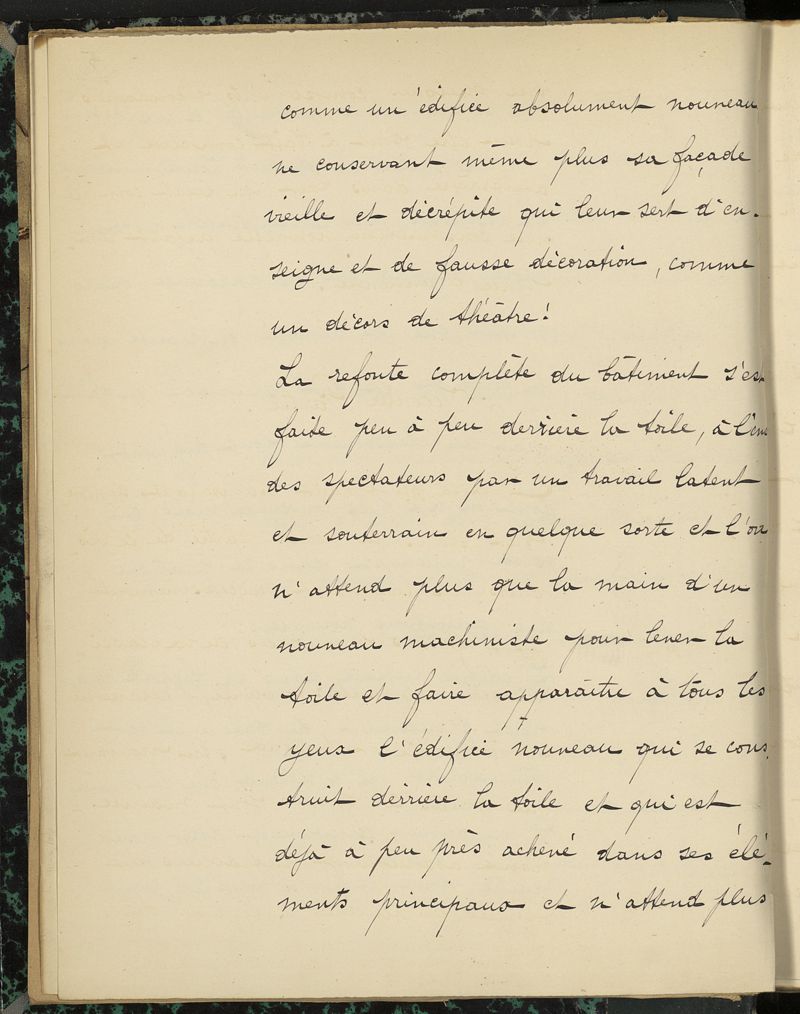 comme un édifice absolument nouveau
ne conservant même plus sa façade
vieille et décrépite qui leur sert d'en-
seigne et de fausse décoration, comme
un décors de théâtre!
La refonte complète du bâtiment s'est
faite peu à peu derrière la toile, à l'insu
des spectateurs par un travail latent
et souterrain en quelque sorte et l'on
n'attend plus que la main d'un
nouveau machiniste pour lever la
toile et faire apparaître à tous les
yeux l'édifice nouveau qui se cons-
truit derrière la toile et qui est
déjà à peu près achevé dans ses élé-
ments principaux et n'attend plus